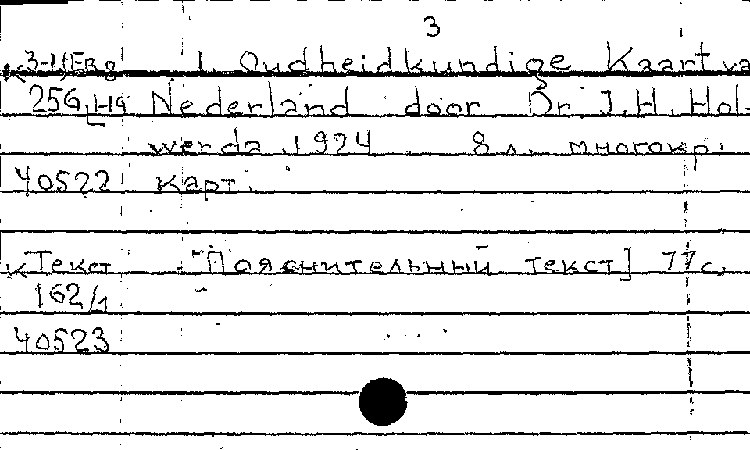 3
1. Oudheidkundige Kaart va
256 Nederland door Dr. J.H. Hol-
werda 1924 8 л. многокр.
40522 карт.
К Текст [Пояснительный текст] 77 с.
162/1
40523